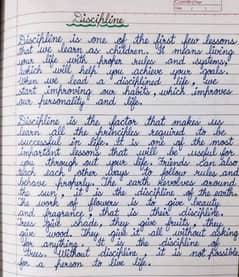 Discipline
Discipline is one of the first few lessons
that we learn as children. It means living
your life with proper rules and systems,
which will help you achieve your goals.
When we lead a disciplined life, we
start improving our habits, which improves
our personality and life.
Discipline is the factor that makes us
learn all the principles required to be
successful in life. It is one of the most
important lessons that will be useful for
you through out your life. Friends can also
teach each other ways to follow rules and
behave properly. The earth revolves around
the sun, it is the discipline of the earth.
The work of flowers is to give beauty
and fragrance, that is their discipline.
Trees give shade, they give fruits, they
give wood they give it all without asking
for anything. It is the discipline of
trees. Without discipline it is not possible
for a person to live life.